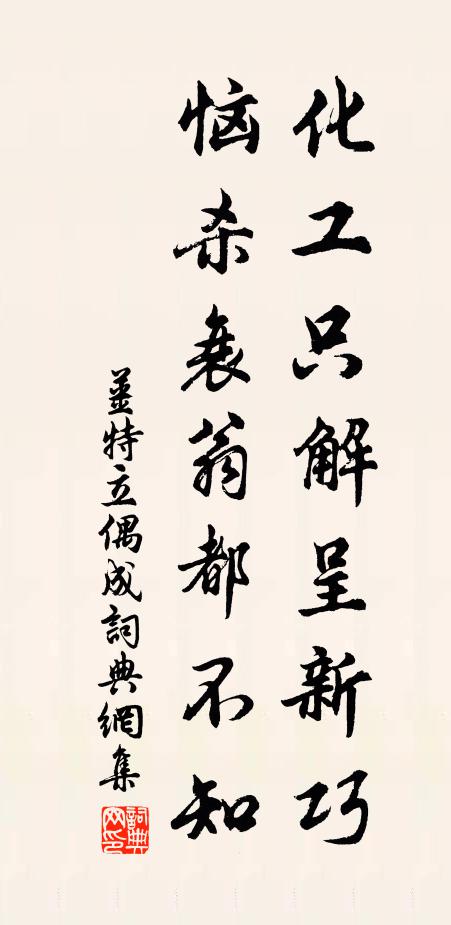 化工只解呈新巧
恼杀衰翁都不知
姜特立偶成詞典網集
詞典網印